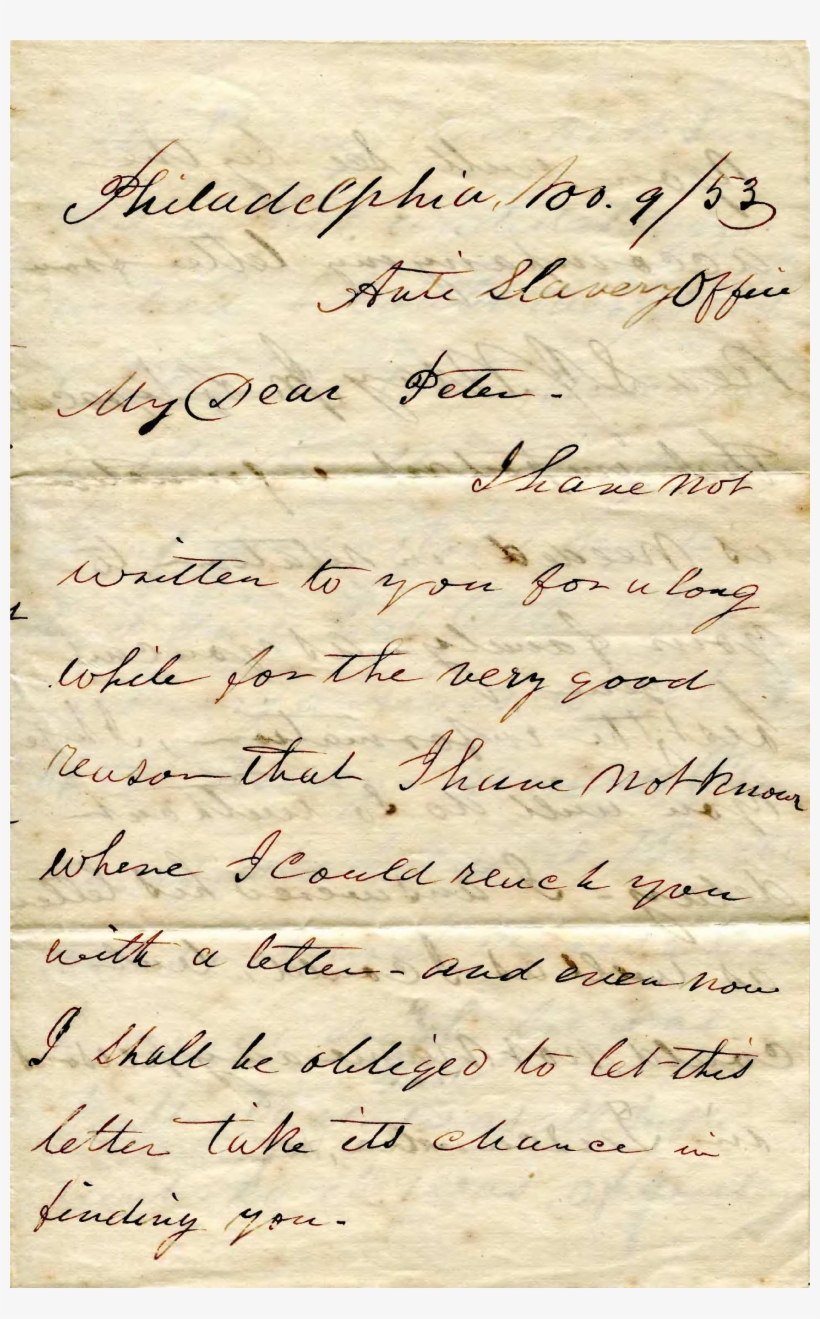 Philadelphia, Nov. 9/53
Anti Slavery Office
My Dear Peter -
I have not
written to you for a long
while for the very good
reason that I have not known
where I could reach you
with a letter - and even now
I shall be obliged to let this
letter take its chance in
finding you -